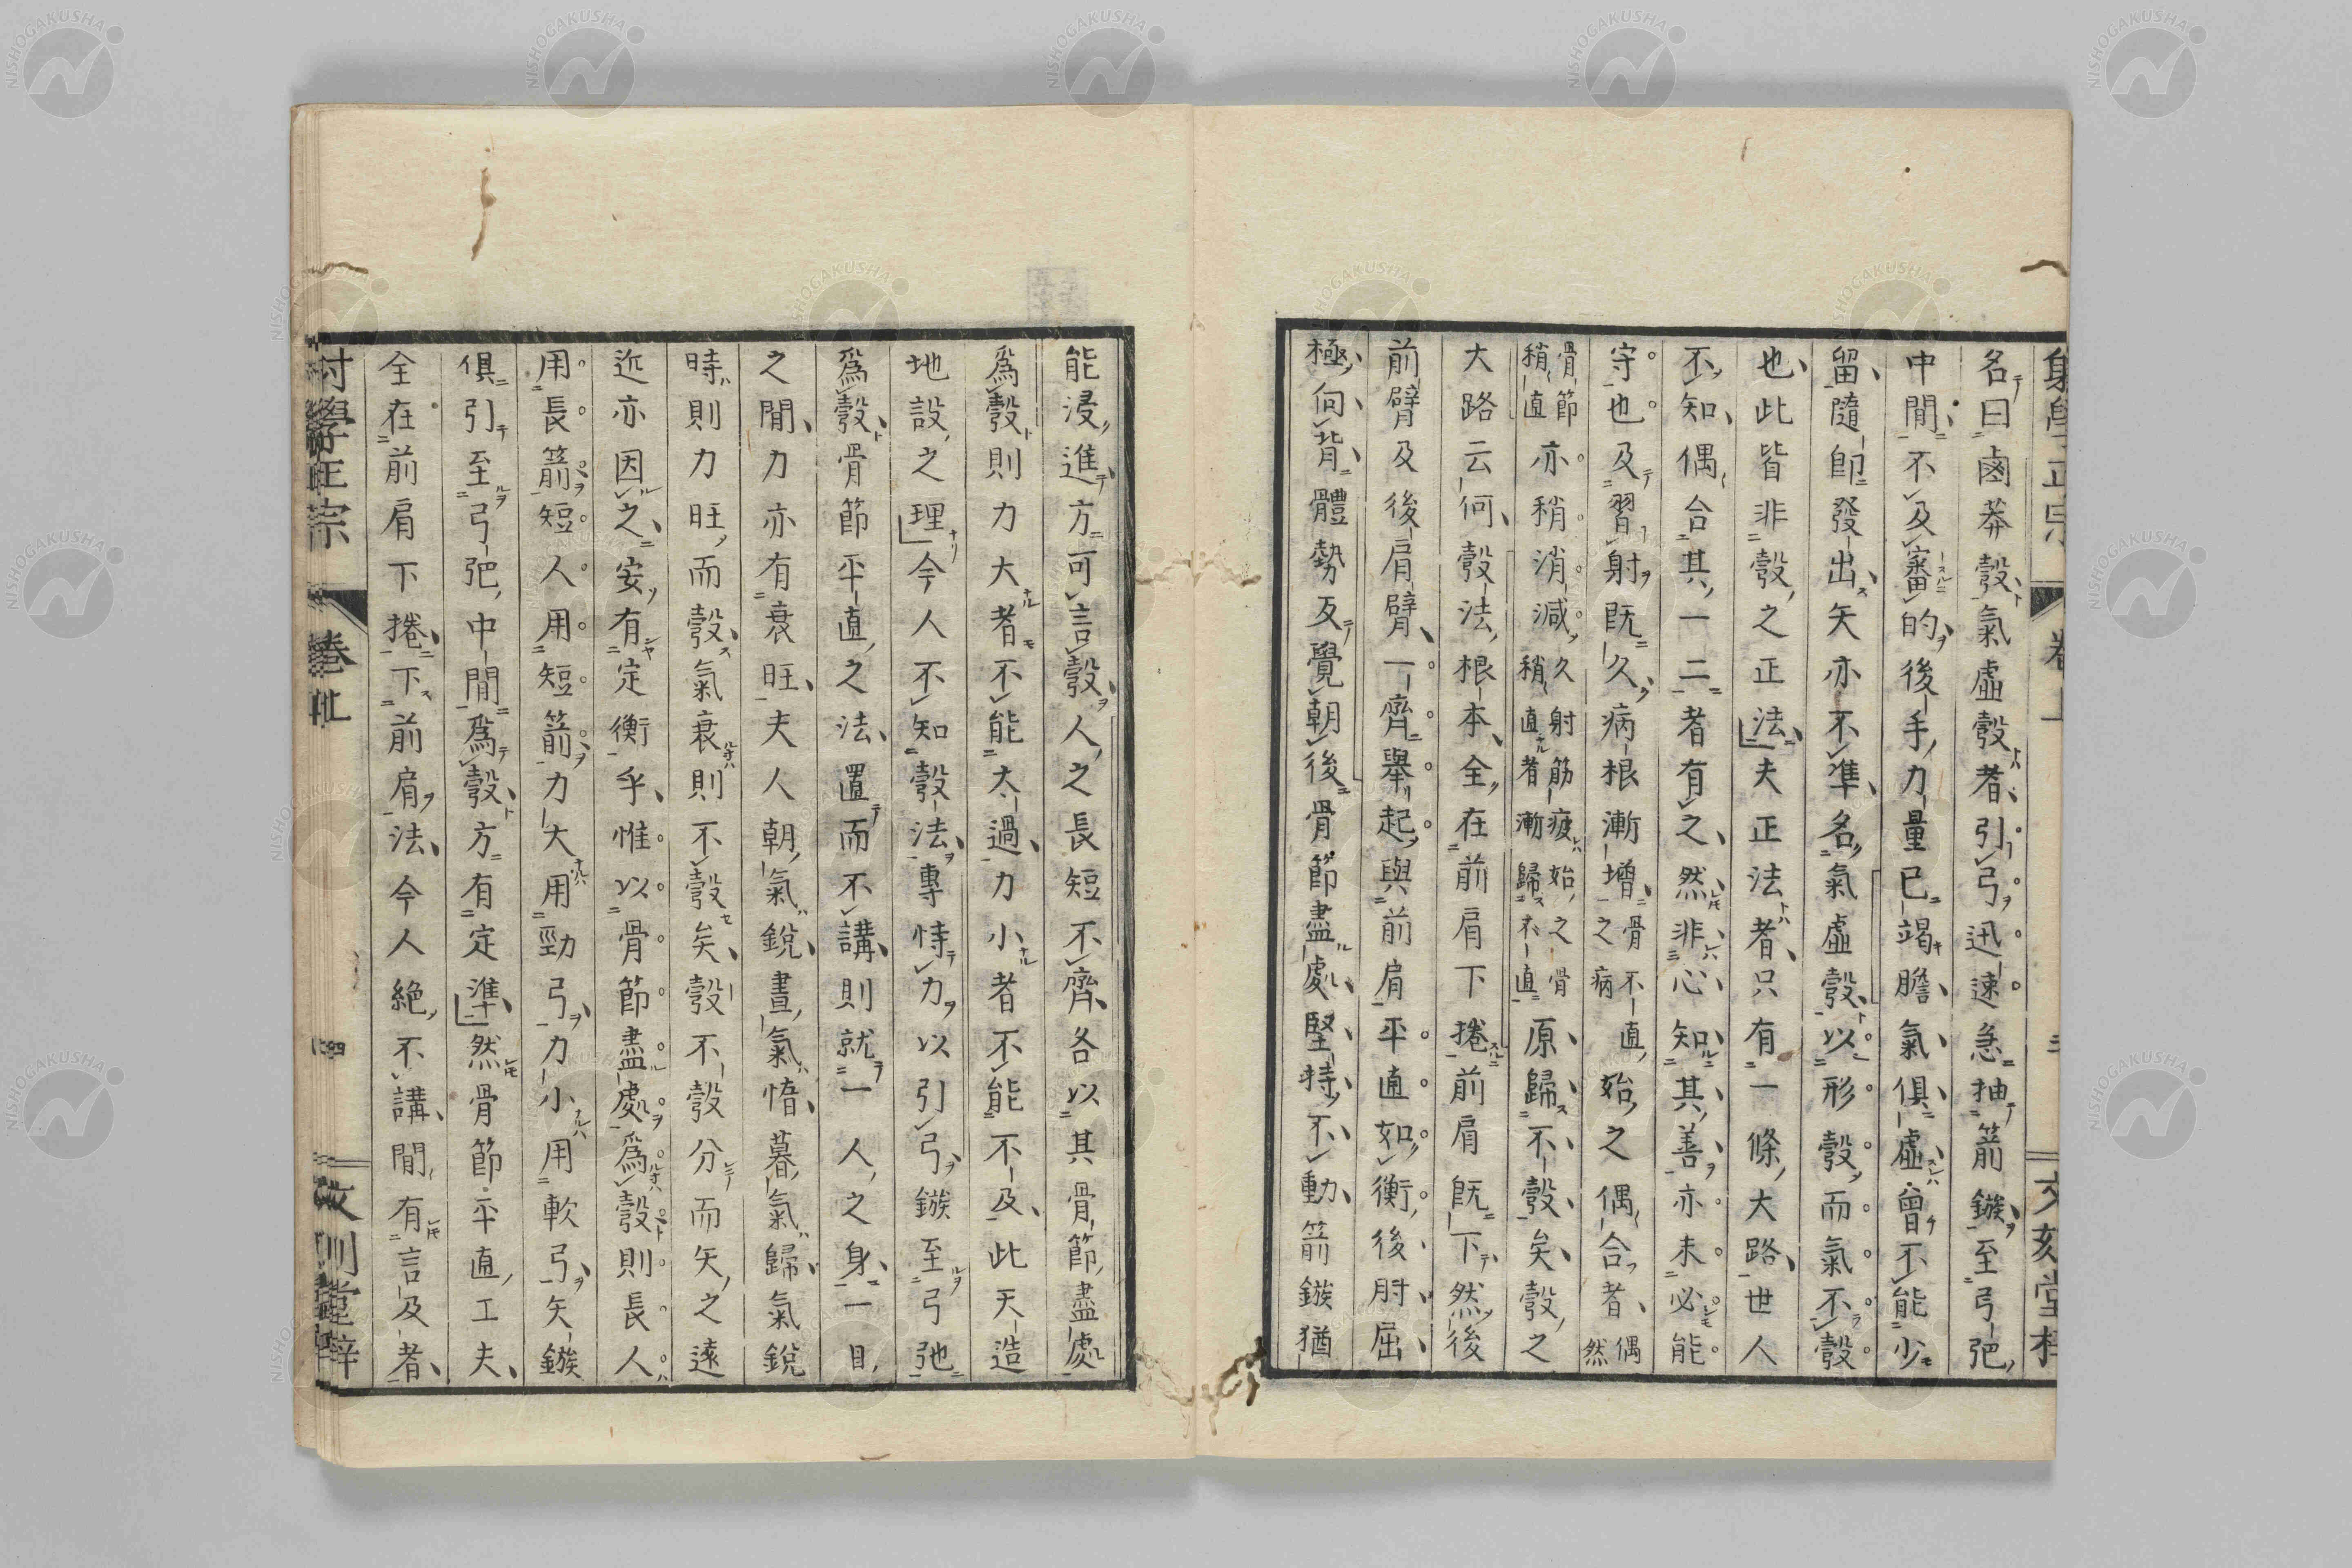 名曰鹵莽彀氣虛彀者引弓迅速急抽箭鏃至弓弝
中間不及審的後手力量已竭膽氣俱虛曾不能少
留隨即發出矢亦不準名氣虛彀以形彀而氣不彀
也此皆非彀之正法夫正法者只有一條大路世人
不知偶合其一二者有之然非心知其善亦未必能
守也及習射既久病根漸增骨不直之病始之偶合者偶然
骨節稍直亦稍消減久射筋疲始之骨稍直者漸歸不直原歸不彀矣彀之
大路云何彀法根本全在前肩下捲前肩既下然後
前臂及後肩臂一齊舉起與前肩平直如衡後肘屈
極向背體勢反覺朝後骨節盡處堅持不動箭鏃猶
能浸進方可言彀人之長短不齊各以其骨節盡處
爲彀則力大者不能太過力小者不能不及此天造
地設之理今人不知彀法專恃力以引弓鏃至弓弛
爲彀骨節平直之法置而不講則就一人之身一日
之間力亦有衰旺夫人朝氣銳晝氣惰暮氣歸氣銳
時則力旺而彀氣衰則不彀矣彀不彀分而矢之遠
近亦因之安有定衡乎惟以骨節盡處爲彀則長人
用長箭短人用短箭力大用勁弓力小用軟弓矢鏃
俱引至弓弝中間爲彀方有定準然骨節平直工夫
全在前肩下捲下前肩法今人絶不講間有言及者
射學正宗
NISHOGAKUSHA